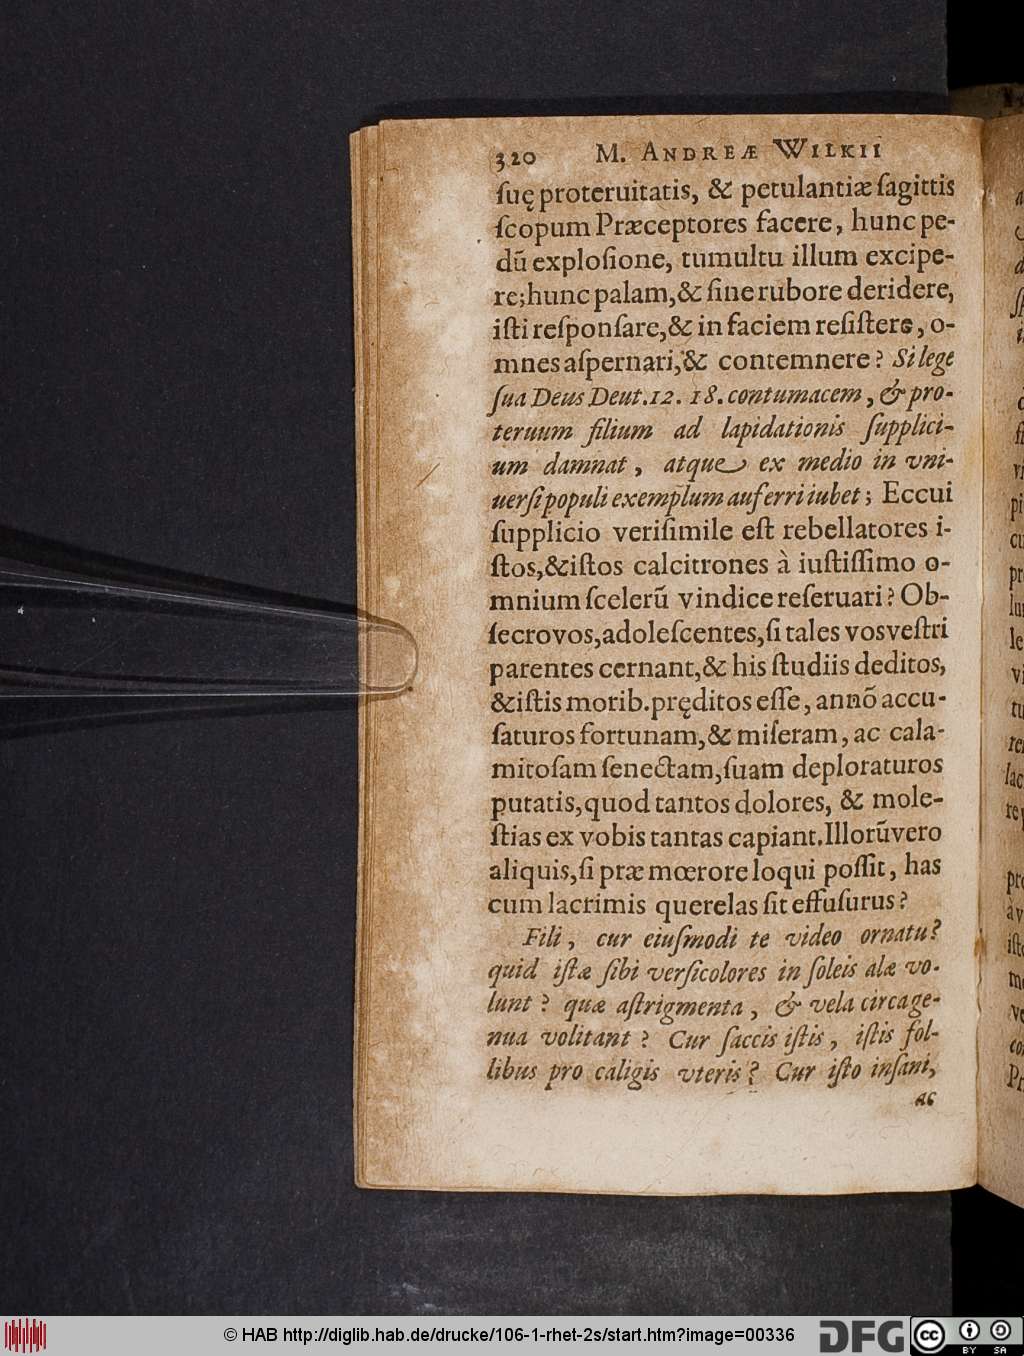 320 M. ANDREÆ WILKII
ſuę proteruitatis, & petulantiæ ſagittis
ſcopum Præceptores facere, hunc pe-
dū exploſione, tumultu illum excipe-
re; hunc palam, & ſine rubore deridere,
iſti reſponſare, & in faciem reſiſtere, o-
mnes aſpernari, & contemnere? Si lege
ſua Deus Deut. 12. 18. contumacem, & pro-
teruum filium ad lapidationis ſupplici-
um damnat, atque ex medio in vni-
uerſi populi exemplum auferri iubet; Eccui
ſupplicio veriſimile eſt rebellatores i-
ſtos, & iſtos calcitrones à iuſtiſſimo o-
mnium ſcelerū vindice reſeruari? Ob-
ſecro vos, adoleſcentes, ſi tales vos veſtri
parentes cernant, & his ſtudiis deditos,
& iſtis morib. pręditos eſſe, annō accu-
ſaturos fortunam, & miſeram, ac cala-
mitoſam ſenectam, ſuam deploraturos
putatis, quod tantos dolores, & mole-
ſtias ex vobis tantas capiant. Illorū vero
aliquis, ſi præ mœrore loqui poſſit, has
cum lacrimis querelas ſit effuſurus?
Fili, cur eiuſmodi te video ornatu?
quid iſtæ ſibi verſicolores in ſoleis alæ vo-
lunt? quæ aſtrigmenta, & vela circa ge-
nua volitant? Cur ſaccis iſtis, iſtis fol-
libus pro caligis vteris? Cur iſto inſani,
ac
© HAB http://diglib.hab.de/drucke/106-1-rhet-2s/start.htm?image=00336
DFG
cc BY SA